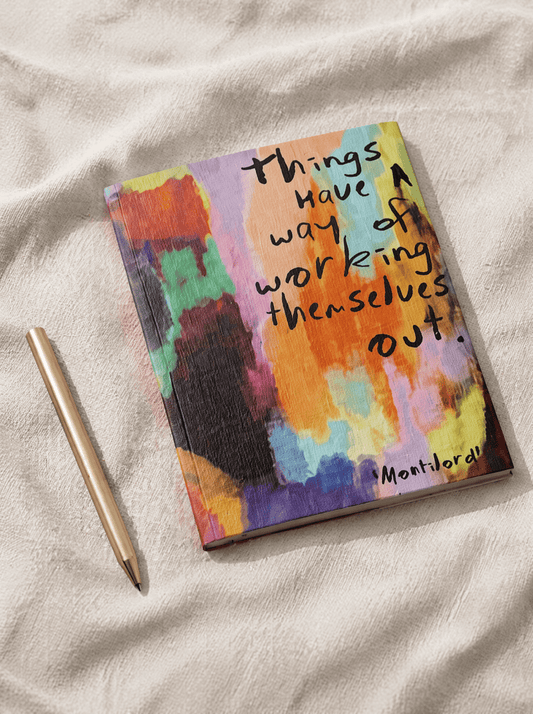 things
HAVE A
way of
working
themselves
out.
'Montilord'